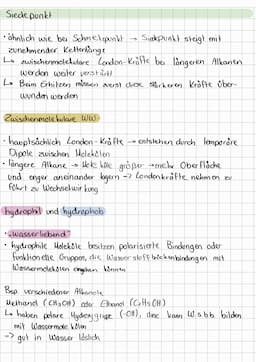 Siedepunkt
• ähnlich wie bei Schmelzpunkt → Siedepunkt steigt mit
zunehmender Kettenlänge
↳ zwischenmolekulare London-Kräfte bei längeren Alkanen
werden weiter verstärkt
↳ Beim Erhitzen müssen zuerst diese stärkeren Kräfte über-
wunden werden
Zwischenmolekulare WW
• hauptsächlich London-Kräfte → entstehen durch temporäre
Dipole zwischen Molekülen
• längere Alkane → Moleküle größer → mehr Oberfläche
und enger aneinander lagern → Londonkräfte nehmen zu
führt zu Wechselwirkung
hydrophil und hydrophob
• "wasserliebend"
• hydrophile Moleküle besitzen polarisierte Bindungen oder
funktionelle Gruppen, die Wasserstoffbrückenbindungen mit
Wassermolekülen eingehen können
Bsp. verschiedener Alkanole
Methanol (CH₃OH) oder Ethanol (C₂H₅OH)
↳ haben polare Hydroxygruppe (-OH), diese kann W.s.b.b. bilden
mit Wassermolekülen
→ gut in Wasser löslich